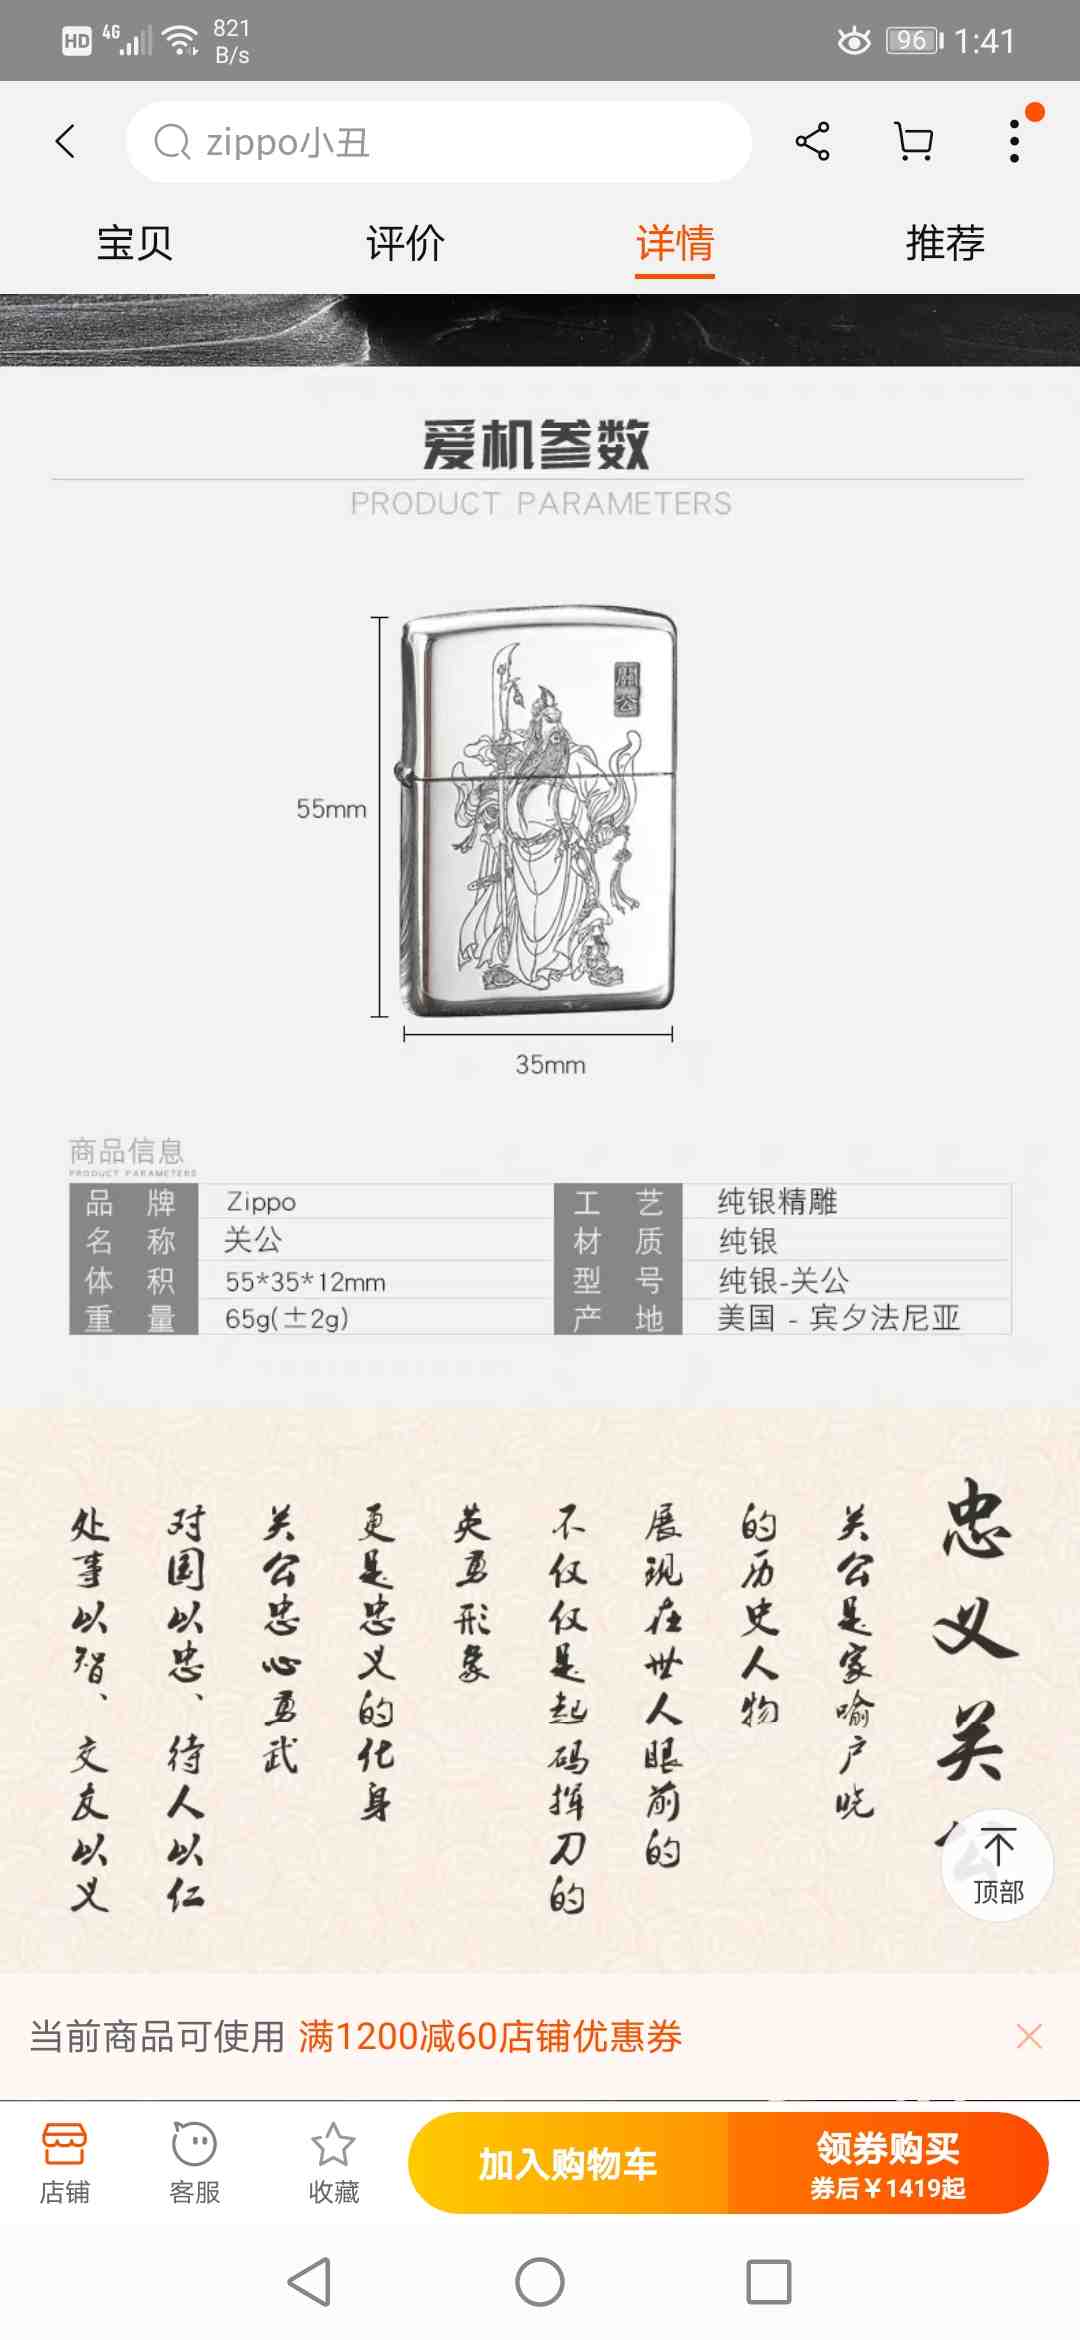 HD 4G 821 B/s 96 1:41
zippo小丑
宝贝 评价 详情 推荐
爱机参数
PRODUCT PARAMETERS
關公
55mm
35mm
商品信息
PRODUCT PARAMETERS
品牌 Zippo 工艺 纯银精雕
名称 关公 材质 纯银
体积 55*35*12mm 型号 纯银-关公
重量 65g(±2g) 产地 美国 - 宾夕法尼亚
忠义关
关公是家喻户晓
的历史人物
展现在世人眼前的
不仅仅是起码挥刀的
英勇形象
更是忠义的化身
关公忠心勇武
对国以忠、待人以仁
处事以智、交友以义
顶部
当前商品可使用 满1200减60店铺优惠券
店铺 客服 收藏 加入购物车 领券购买
券后￥1419起